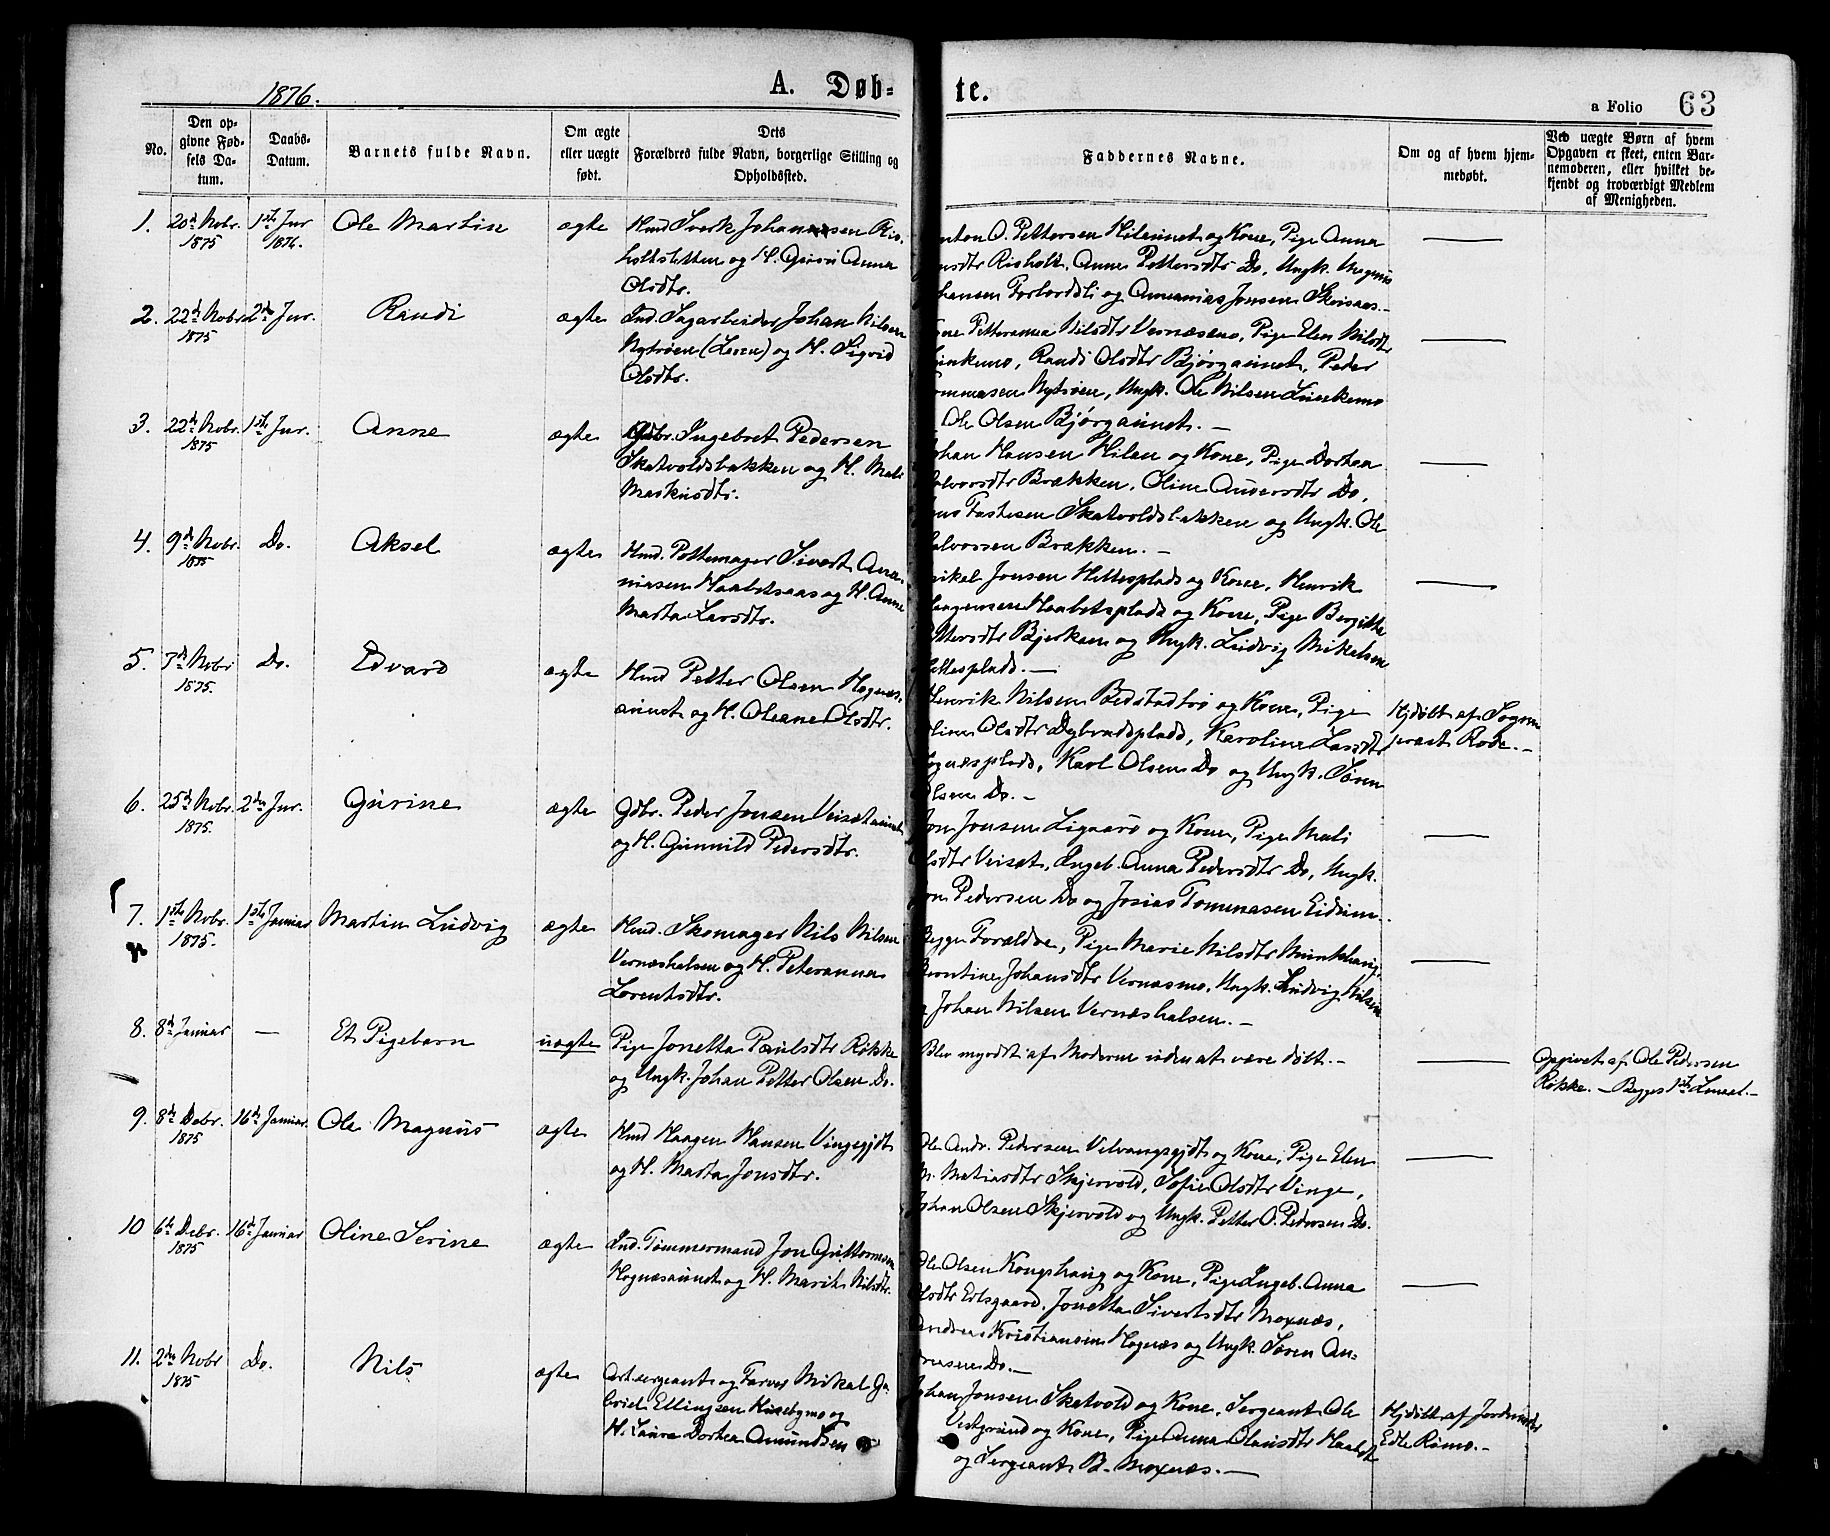 1876.
A. Døb-
te.
a Folio 63
No.
Den op-
givne Fød-
sels Da-
tum.
Daabs-
Datum.
Barnets fulde Navn.
Om ægte
eller uægte
født.
Dets
Forældres fulde Navn, borgerlige Stilling og
Opholdssted.
Faddernes Navne.
Om og af hvem hjem-
medøbt.
Ved uægte Børn af hvem
Opgaven er skeet, enten Bar-
nemoderen, eller hvilket be-
kjendt og troværdigt Medlem
af Menigheden.
1. 20de Novbr. 1875
1ste Jnr 1876.
Ole Martin
ægte
Hmd Sverk Johansen Ris-
holtsletten og H. Guru Anna
Olsdtr.
nton O. Pettersen Hilamnet og Kone, Pige Anna
nsdtr Risholt, Anne Pettersdtr Do, Ungk. Magnus
hansen Forbordsli og Annanias Jonsen Skeisaas.-
2. 22de Novbr 1875
2den Jnr.
Randi
ægte
Ind. Sagarbeider Johan Nilsen
Nytrøen (Leren) og H. Sigrid
Olsdtr.
ne Petteranna Nilsdtr Vernæsmo, Pige Elen Nilsdtr
inkmo, Randi Olsdtr Bjørgaunet, Peder
ommasen Nytrøen, Ungk. Ole Nilsen Linkmo
Ole Olsen Bjørgaunet. -
3. 22de Novbr. 1875
1ste Jnr.
Anne
ægte
Gdbr. Ingebret Pedersen
Skatvoldsbakken og H. Mali
Markusdtr.
ohan Hansen Hilan og Kone, Pige Dortea
alvorsdtr Brækken, Oline Andersdtr Do,
Skatvoldsbakken og Ungk. Ole
alvorsen Brækken. -
4. 9de Novbr. 1875
Do.
Aksel
ægte
Hmd. Pottemager Sivert Ana-
niasen Haabetsaas og H. Anne
Marta Larsdtr.
ikel Jonsen Hellesplads og Kone, Henrik
aagensen Haabetsplads og Kone, Pige Bergitte
ttersdtr Bjerkan og Ungk. Ludvig Mikalsen
ellesplads. -
5. 7de Novbr 1875.
Do.
Edvard
ægte
Hmd Petter Olsen Hognes-
aunet og H. Oleane Olsdtr.
Henrik Nilsen Bolstadtrø og Kone, Pige
oline Olsdtr Dybvadsplads, Karoline Larsdtr
ognæsplads, Karl Olsen Do og Ungk. Søren
lsen Do. -
Hjdøbt af Sogne-
præst Rode. -
6. 25de Novbr. 1875.
2den Jnr.
Gurine
ægte
Gdbr. Peder Jonsen Veisetaunet
og H. Gunnild Pedersdtr.
Jon Jonsen Ligaard og Kone, Pige Mali
lsdtr Veiset, Ingeb. Anna Pedersdtr Do, Ungk.
on Pedersen Do og Josias Tommasen Eidum.
7. 1ste Novbr. 1875.
1ste Januar
Martin Ludvig
ægte
Hmd. Skomager Nils Nilsen
Vernæshalsen og H. Peteranna
Lorentsdtr.
Begge Forældre, Pige Marie Nilsdtr Munkhaug,
Berntine Johansdtr Vernæsmo, Ungk. Ludvig Nilsen
Johan Nilsen Vernæshalsen. -
8. 8de Januar
—
Et Pigebarn
uægte
Pige Jonetta Paulsdtr Røkke
og Ungk. Johan Petter Olsen Do.
Blev myrdet af Moderen uden at være døbt. -
Opgivet af Ole Pedersen
Røkke. - Begges 1ste Leiermaal. -
9. 8de Debr. 1875
16de Januar.
Ole Magnus
ægte
Hmd Haagen Hansen Vingegjdt
og H. Marta Jonsdtr.
Ole Andr. Pedersen Velvangsgjdt og Kone, Pige Elen
M. Matiasdtr Skjervold, Sofie Olsdtr Vinge,
Johan Olsen Skjervold og Ungk. Petter O. Pedersen Do.
10 6te Debr. 1875
16de Januar
Oline Serine
ægte
Ind. Tømmermand Jon Guttormsen
Hognæsaunet og H. Marit Nilsdtr.
Ole Olsen Kongshaug og Kone, Pige Ingeb. Anna
lsdtr Ertsgaard, Jonetta Sivertsdtr Moxnæs,
Andreas Kristiansen Hognæs og Ungk. Søren An-
Do. -
11. 2den Novbr 1875
Do.
Nils
ægte
Art. sergeant og Farver Mikal Ga-
briel Ellingsen Husebymo og
H. Laura Dortea Amundsen
Johan Jonsen Skatvold og Kone, Sergeant Ole
Vestgrund og Kone, Pige Anna Olausdtr
og Sergeant B. Moxnæs. -
Hjdøbt af Jordmoder
Edle Rømo. -